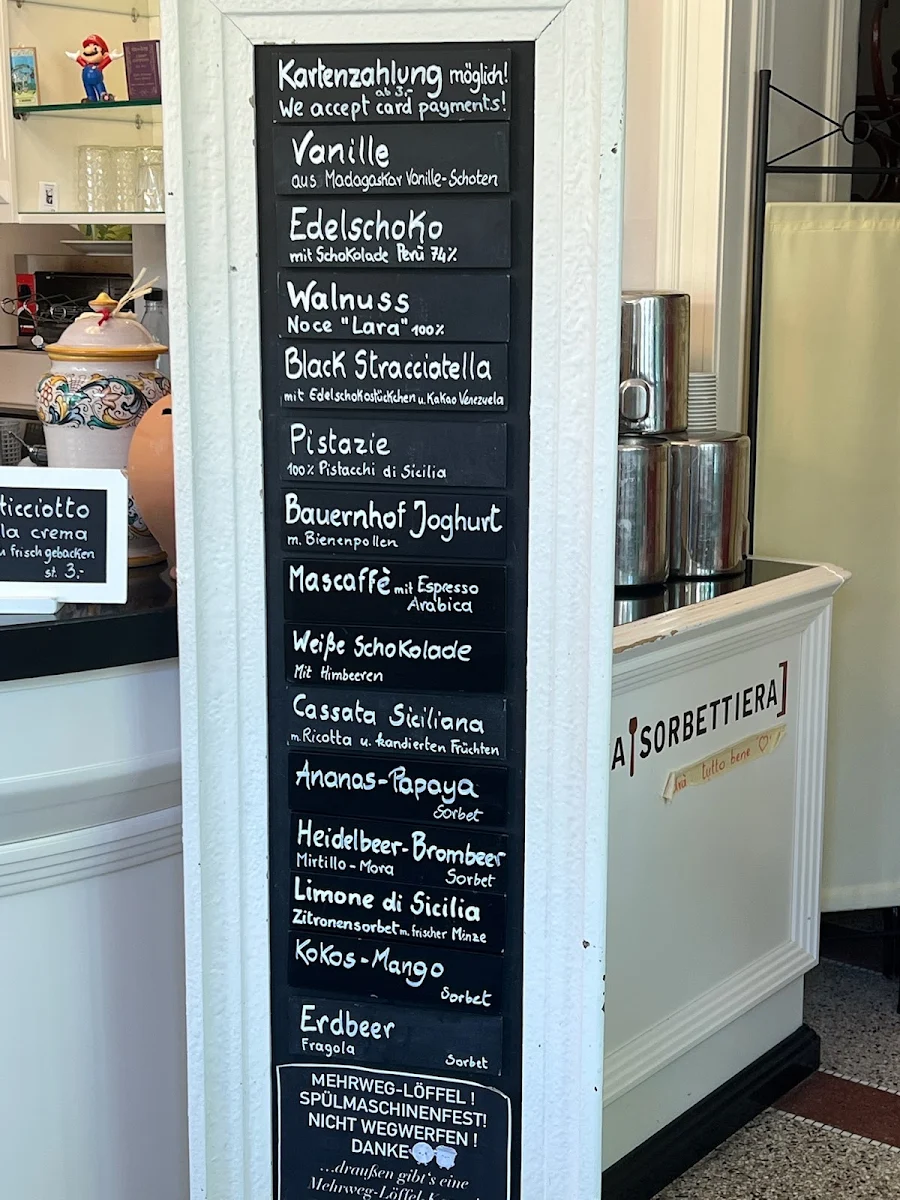 Kartenzahlung möglich!
ab 3,-
We accept card payments!
Vanille
aus Madagaskar Vanille-Schoten
Edelschoko
mit Schokolade Perù 74%
Walnuss
Noce "Lara" 100%
Black Stracciatella
mit Edelschokostückchen u. Kakao Venezuela
Pistazie
100% Pistacchi di Sicilia
Bauernhof Joghurt
m. Bienenpollen
Mascaffè mit Espresso
Arabica
Weiße Schokolade
Mit Himbeeren
Cassata Siciliana
m. Ricotta u. kandierten Früchten
Ananas-Papaya
Sorbet
Heidelbeer-Brombeer
Mirtillo-Mora Sorbet
Limone di Sicilia
Zitronensorbet m. frischer Minze
Kokos-Mango
Sorbet
Erdbeer
Fragola Sorbet
MEHRWEG-LÖFFEL !
SPÜLMASCHINENFEST!
NICHT WEGWERFEN !
DANKE
...draußen gibt's eine
ticciotto
la crema
frisch gebacken
st. 3,-
A SORBETTIERA]
tutto bene